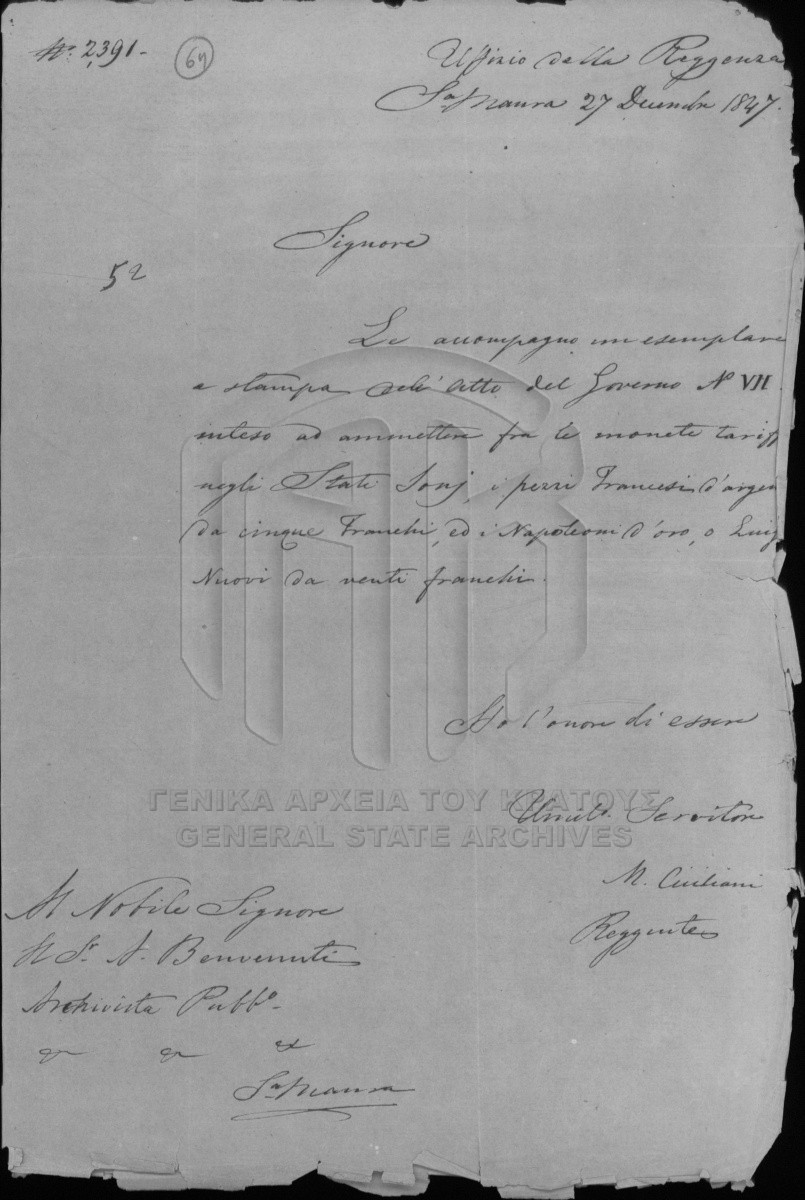 No. 2391-
64
Uffizio della Reggenza
Sa. Maura 27 Decembre 1847.
Signore
52
Le accompagno un esemplare
a stampa dell'Atto del Governo No VII
inteso ad ammettere fra le monete tariff
negli Stati Ionj, i pezzi Francesi d'argen
da cinque Franchi, ed i Napoleoni d'oro, o Luig
Nuovi da venti franchi.
Ho l'onore di essere
Umilo. Servitore
M.
Reggente
Al Nobile Signore
Il Sr. A. Benvenuti
Archivista Pubbo.
Sa. Maura
ΓΕΝΙΚΑ ΑΡΧΕΙΑ ΤΟΥ ΚΡΑΤΟΥΣ
GENERAL STATE ARCHIVES